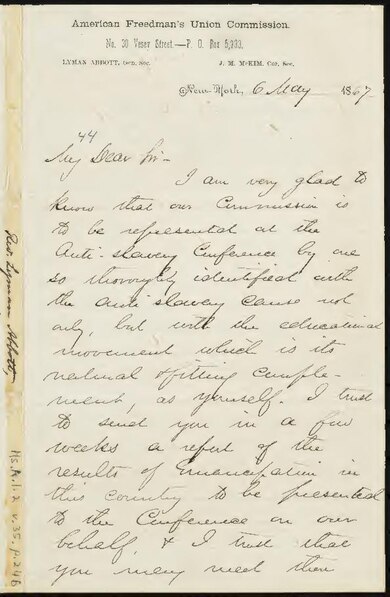 American Freedman's Union Commission.
No. 30 Vesey Street.—P. O. Box 5,733.
LYMAN ABBOTT, Gen. Sec.
J. M. McKIM, Cor. Sec.
New-York, 6 May 1867.
44
My Dear Sir—
I am very glad to
know that our Commission is
to be represented at the
Anti-slavery Conference by one
so thoroughly identified with
the anti slavery cause not
only, but with the educational
movement which is its
natural & fitting comple-
ment, as yourself. I trust
to send you in a few
weeks a report of the
results of Emancipation in
this country to be presented
to the Conference on our
behalf, & I trust that
you may meet there
Rev. Lyman Abbott
Ms.A.1.2 v.35, p.24B